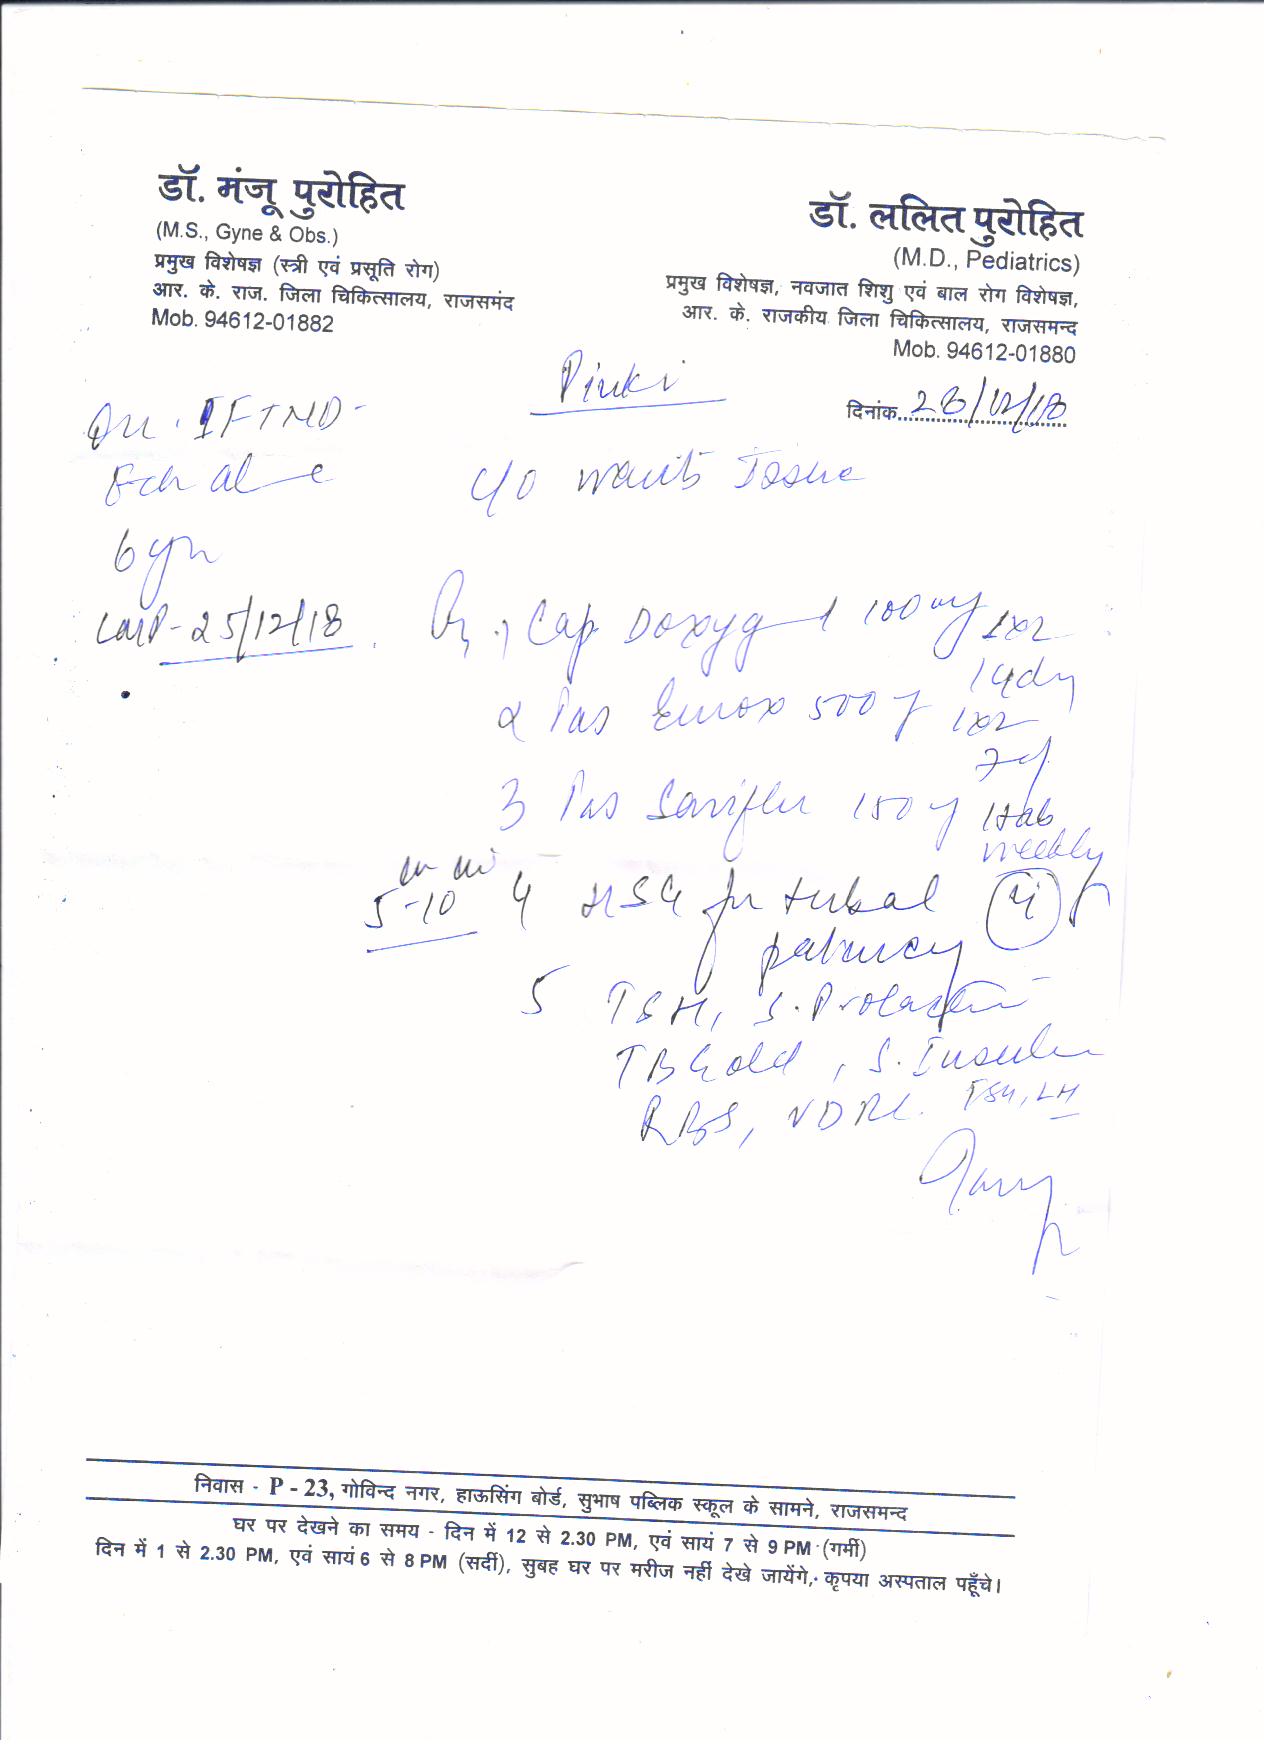 डॉ. मंजू पुरोहित
(M.S., Gyne & Obs.)
प्रमुख विशेषज्ञ (स्त्री एवं प्रसूति रोग)
आर. के. राज. जिला चिकित्सालय, राजसमंद
Mob. 94612-01882
डॉ. ललित पुरोहित
(M.D., Pediatrics)
प्रमुख विशेषज्ञ, नवजात शिशु एवं बाल रोग विशेषज्ञ,
आर. के. राजकीय जिला चिकित्सालय, राजसमन्द
Mob. 94612-01880
Pinki
दिनांक 28/12/18
IFTND -
C/O wants Issue
6 yr
LMP - 25/12/18
Cap Doxy 1 100 mg 1x2
14 dy
2 Tab 500 1x2
7 d
3 Tab 150 1 tab
weekly
5-10 4 HSG for tubal (4)
patency
5 TSH, S. Prolactin
TB Gold, S. Insulin
RBS, VDRL. FSH, LH
निवास - P - 23, गोविन्द नगर, हाऊसिंग बोर्ड, सुभाष पब्लिक स्कूल के सामने, राजसमन्द
घर पर देखने का समय - दिन में 12 से 2.30 PM, एवं सायं 7 से 9 PM (गर्मी)
दिन में 1 से 2.30 PM, एवं सायं 6 से 8 PM (सर्दी), सुबह घर पर मरीज नहीं देखे जायेंगे, कृपया अस्पताल पहूँचे।